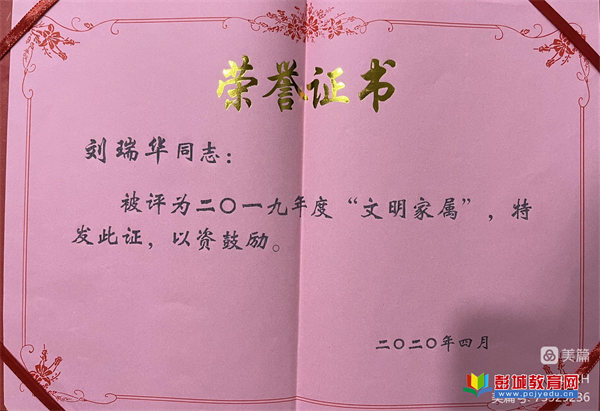 荣誉证书
刘瑞华同志：
被评为二〇一九年度“文明家属”，特
发此证，以资鼓励。
二〇二〇年四月
美篇
彭城教育网
www.pcjyedu.cn